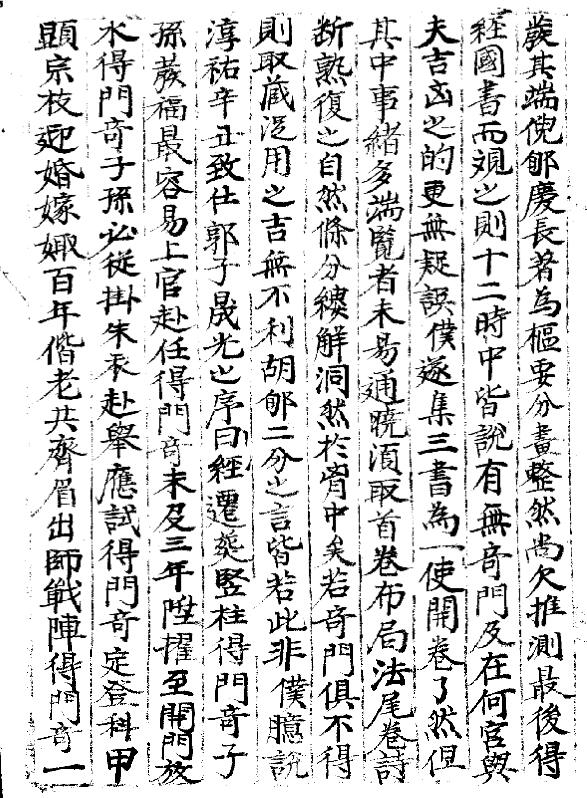 發其端倪郇慶長著為樞要分畫整然尚欠推測最後得
經國書而覌之則十二時中皆說有無竒門及在何宫與
夫吉凶之的更無疑誤僕遂集三書為一使開卷了然但
其中事緒多端覧者未易通曉湏取首卷布局法尾卷詩
断熟復之自然條分縷解洞然於胷中矣若竒門俱不得
則取蔵泛用之吉無不利胡郇二分之言皆若此非僕臆說
淳祐辛丑致仕郭子晟光之序曰經遷塟竪柱得門竒子
孫發福最容易上官赴任得門竒未及三年陞擢至開門放
水得門竒子孫必從掛朱衣赴舉應試得門竒定登科甲
顕宗枝迎婚嫁娵百年偕老共齊眉出師戰陣得門竒一